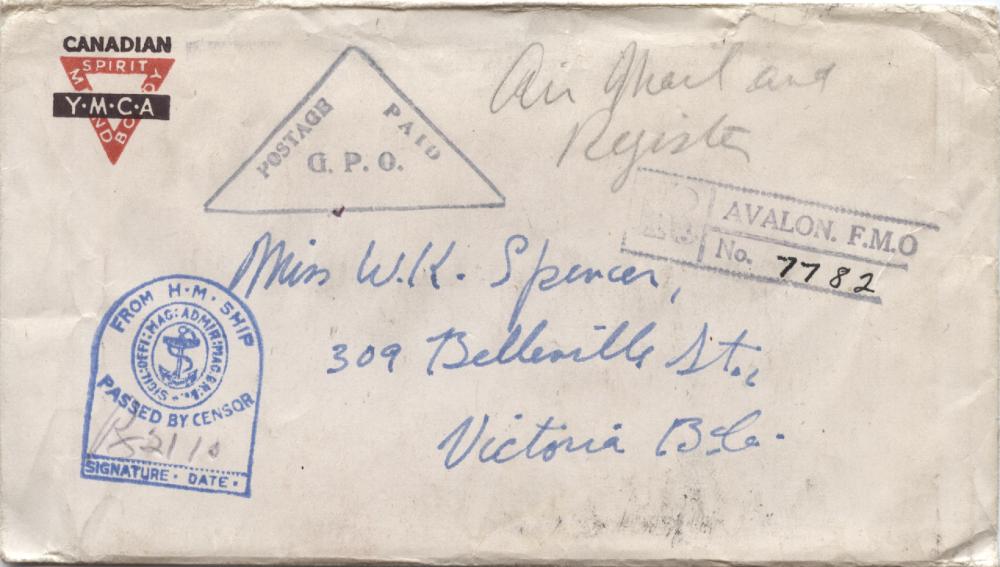 CANADIAN
SPIRIT
MIND
BODY
Y·M·C·A
POSTAGE PAID
G. P. O.
Air Mail and
Register
R
AVALON. F.M.O
No. 7782
Miss W.K. Spencer,
309 Belleville St.,
Victoria B.C.
FROM H·M·SHIP
SIGIL:OFFI:MAG:ADMIR:MAG:BR:
PASSED BY CENSOR
SIGNATURE· DATE·